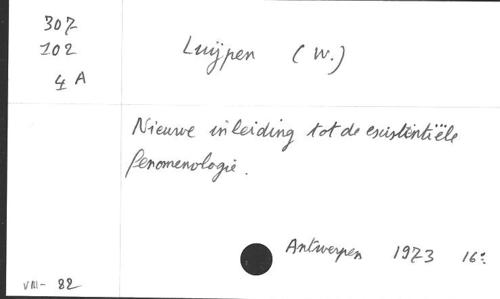 307
102
4 A
Luijpen (W.)
Nieuwe inleiding tot de existentiële
fenomenologie.
Antwerpen 1973 16°
VIII- 82